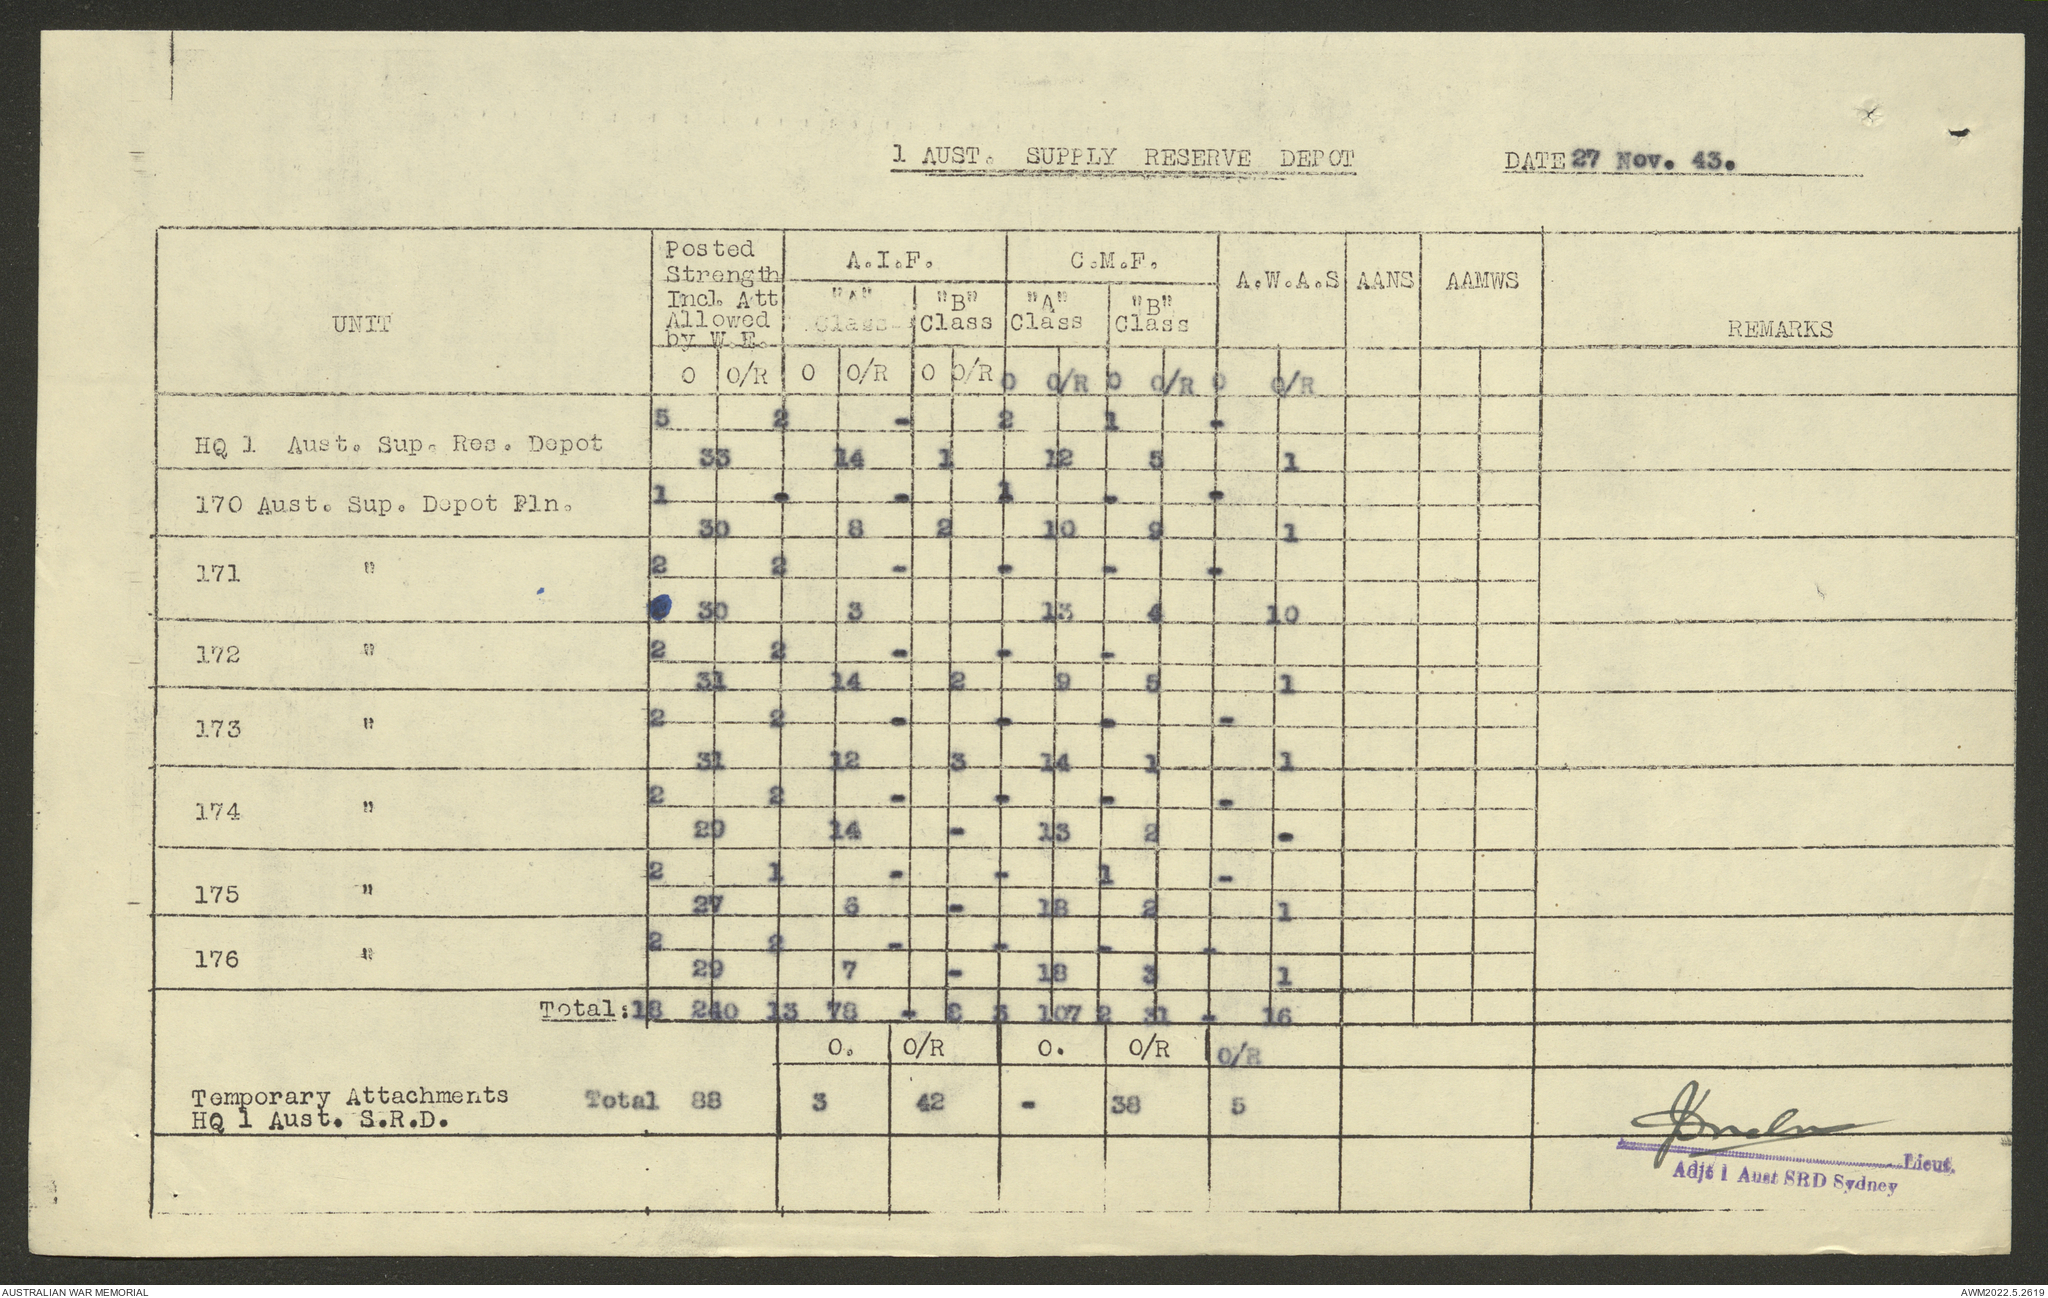 1 AUST. SUPPLY RESERVE DEPOT DATE 27 Nov. 43.
UNIT
Posted
Strength
Incl. Att
Allowed
by W.E.
A.I.F. C.M.F. A.W.A.S AANS AAMWS REMARKS
"A" "B" "A" "B"
Class Class Class Class
O O/R O O/R O O/R O O/R O O/R O O/R
5 2 - 2 1 -
HQ 1 Aust. Sup. Res. Depot
33 14 1 12 5 1
1 - - 1 - -
170 Aust. Sup. Depot Pln.
30 8 2 10 9 1
2 2 - - - -
171 "
30 3 13 4 10
2 2 - - -
172 "
31 14 2 9 5 1
2 2 - - - -
173 "
31 12 3 14 1 1
2 2 - - - -
174 "
29 14 - 13 2 -
2 1 - - 1 -
175 "
27 6 - 18 2 1
2 2 - - - -
176 "
29 7 - 18 3 1
Total: 18 240 13 78 - 8 3 107 2 31 - 16
O. O/R O. O/R O/R
Temporary Attachments Total 88 3 42 - 38 5
HQ 1 Aust. S.R.D.
Lieut.
Adjt 1 Aust SRD Sydney
AUSTRALIAN WAR MEMORIAL AWM2022.5.2619